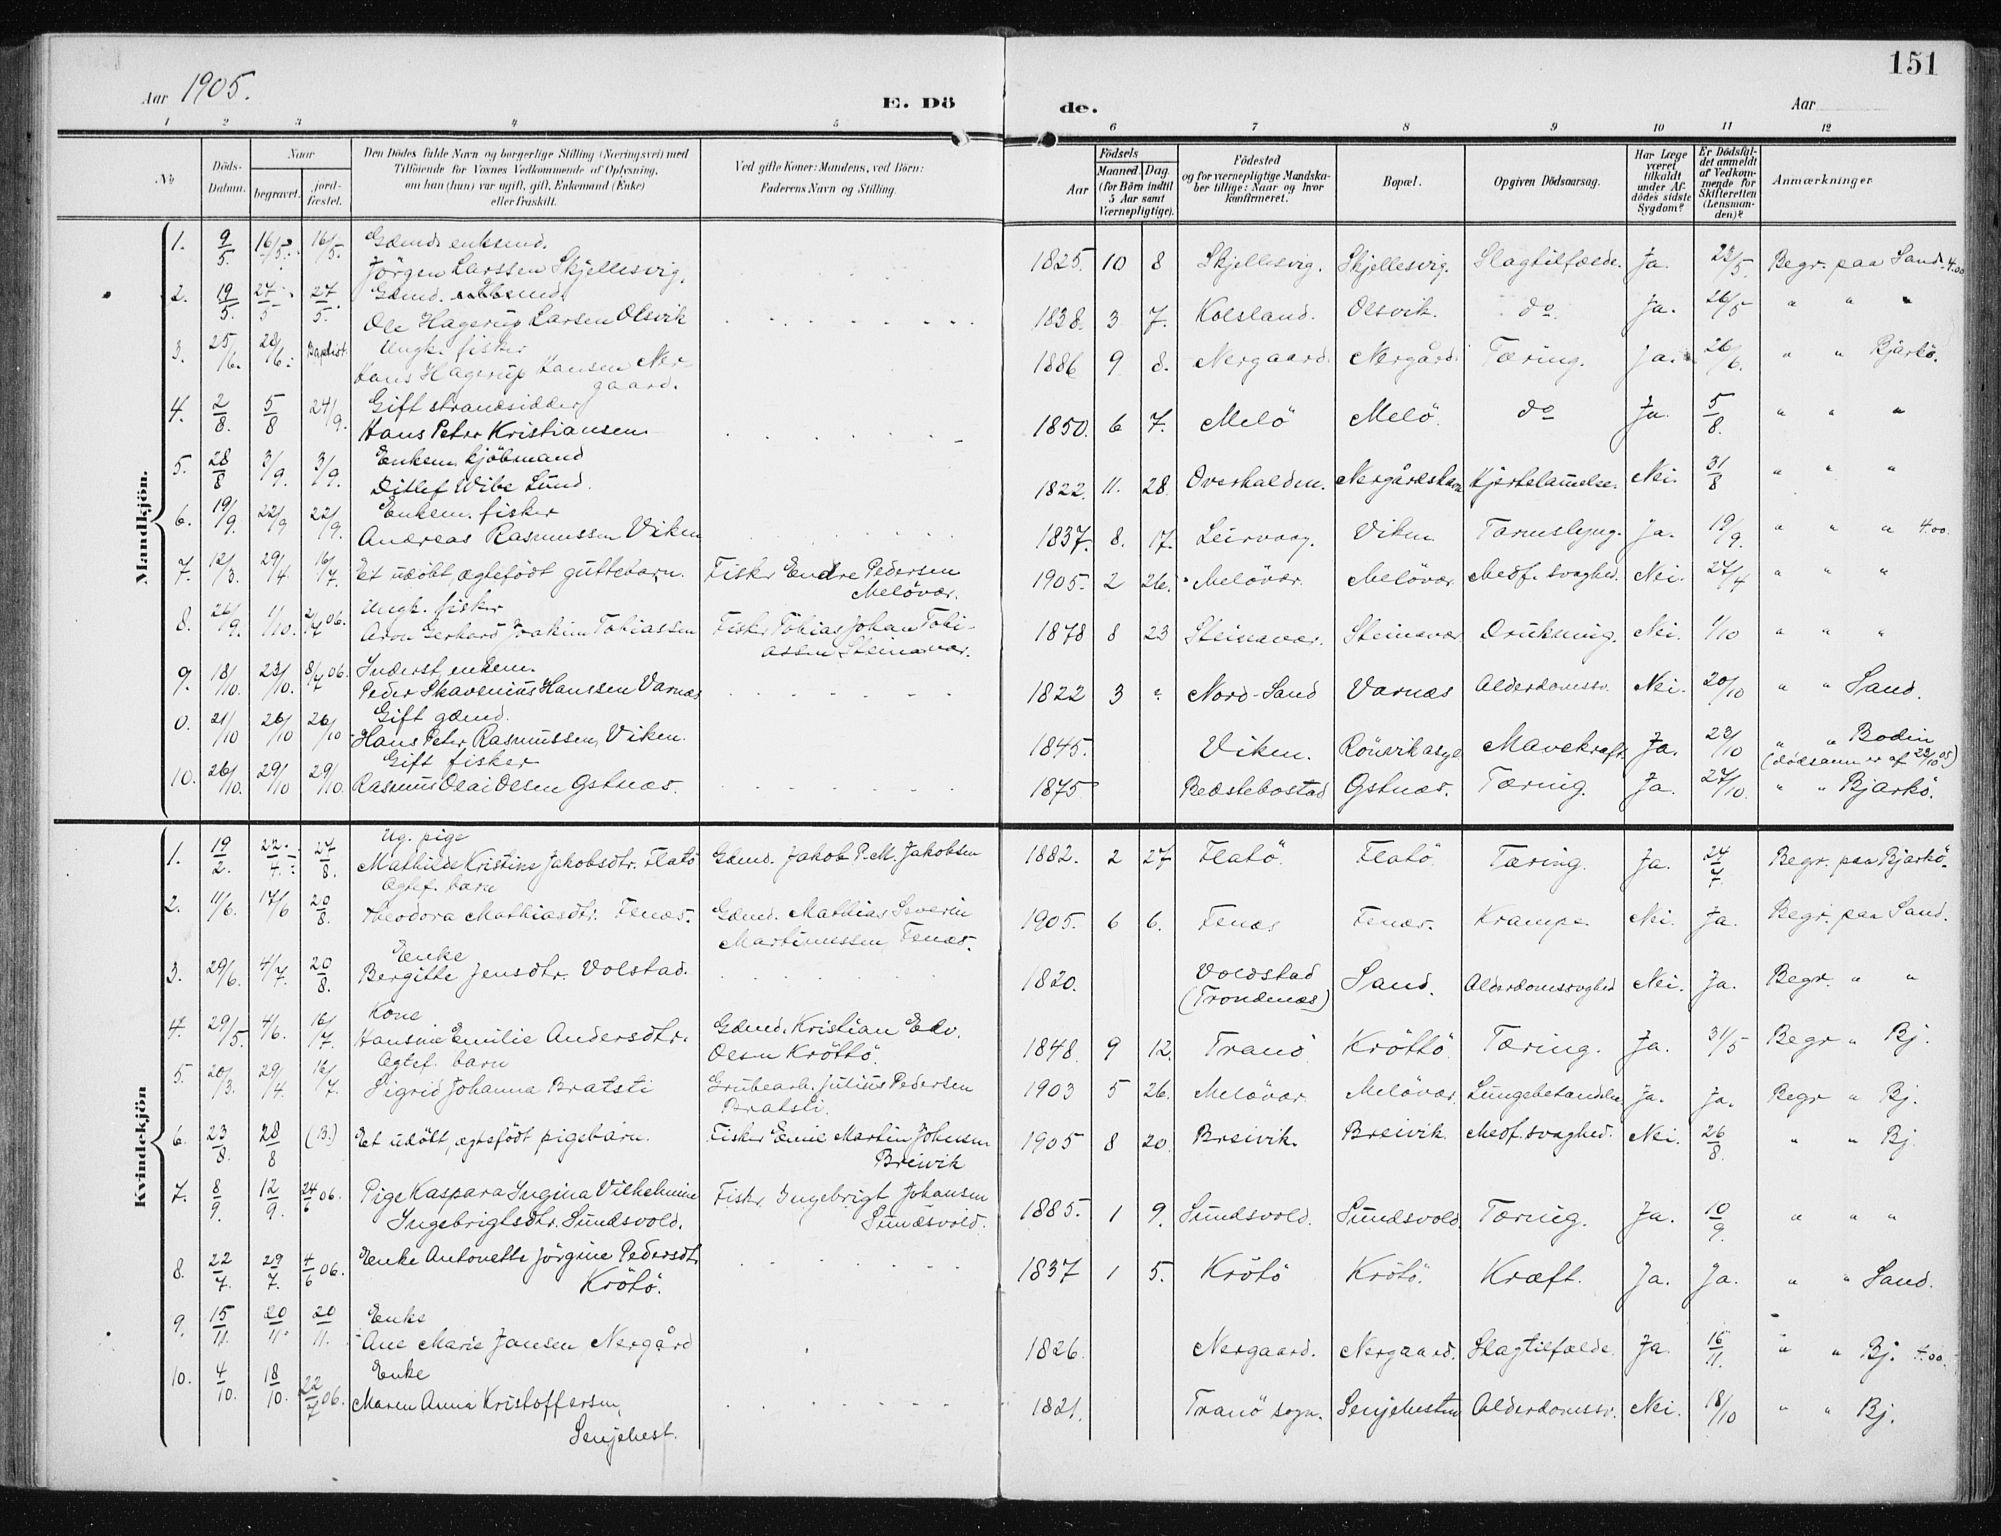 151
Aar 1905.
E. Dö de.
Aar
1 2 3 4 5 6 7 8 9 10 11 12
No
Döds-Datum.
Naar
begravet.
jord-fæstet.
Den Dödes fulde Navn og borgerlige Stilling (Næringsvei) med Tilföiende for Voxnes Vedkommende af Oplysning, om han (hun) var ugift, gift, Enkemand (Enke) eller fraskilt.
Ved gifte Koner: Mandens, ved Börn: Faderens Navn og Stilling.
Födsels
Aar
Maaned. Dag.
(for Börn indtil 5 Aar samt Værnepligtige).
Födested og for værnepligtige Mandska-ber tillige: Naar og hvor konfirmeret.
Bopæl.
Opgiven Dödsaarsag.
Har Læge været tilkaldt under Af-dödes sidste Sygdom?
Er Dödsfal-det anmeldt af Vedkom-mende for Skifteretten (Lensman-den)?
Anmærkninger
Mandkjön.
1. 9/5 16/5 16/5 Gdmd enkemd. Jörgen Larssen Skjellesvig. 1825. 10 8 Skjellesvig. Skjellesvig. Slagtilfælde. Ja. 23/5 Begr. paa Sand. 4.00
2. 19/5. 27/5 27/5. Gdmd. Ole Hagerup Larsen Olsvik 1838. 3 7. Kolsland. Olsvik. do. Ja. 26/5 " " "
3. 25/6. 28/6. Baptist. Ungk. fisker Hans Hagerup Hansen Ner-gaard. 1886 9 8. Nergaard. Nergård. Tæring. Ja. 26/6. " " Bjarkö.
4. 2/8. 5/8 24/9. Gift strandsidder Hans Peter Kristiansen 1850. 6 7. Melö Melö. do Ja. 5/8. " " "
5. 28/8 3/9. 3/9. Enkem. kjöbmand Ditlef Wibe Lund. 1822. 11. 28. Overhalden. Nergårdshavn Hjertelammelse. Nei. 31/8 " " "
6. 19/9. 22/9 22/9. Enkem. fisker Andreas Rasmussen Viken 1837. 8. 17. Leirvaag. Viken Tarmslyng. Ja. 19/9. " " " 4.00.
7. 12/3. 29/4. 16/7. Et udöbt, ægtefödt guttebarn. Fisker Endre Pedersen Melövær. 1905. 2 26. Melövær. Melövær. Medf. svaghed. Nei. 27/4 " " "
8. 26/9. 1/10. 2/7 06. Ungk. fisker Aron Gerhard Joakim Tobiassen Fisker Tobias Johan Tobi-assen Steinavær. 1878 8 23 Steinavær. Steinavær Drukning. Nei. 1/10 " " "
9. 18/10. 23/10. 8/7 06. Inderst, enkem. Peder Skavenius Hanssen Varnæs 1822 3 " Nord-Sand Varnæs Alderdomssv. Nei. 20/10 " " Sand.
0. 21/10 26/10 26/10 Gift gdmd. Hans Peter Rasmussen, Viken. 1845. Viken. Rönvik asyl Mavekræft. Ja. 23/10 " " Bodin (dödsanm er af 23/10 05)
10. 26/10. 29/10 29/10. Gift fisker Rasmus Olai Olsen Gstnæs. 1875 Redstebostad Gstnæs. Tæring. Ja. 27/10. " " Bjarkö.
Kvindekjön
1. 19/2. 22/4. 27/8. Ug. pige Mathilde Kristine Jakobsdtr. Flatö Gdmd. Jakob P. M. Jakobsen 1882. 2 27 Flatö. Flatö. Tæring. Ja. 24/4. Begr. paa Bjarkö.
2. 11/6. 17/6 20/8. Ægtef. barn Theodora Mathiasdtr. Fenæs. Gdmd. Mathias Severin Martinussen Fenæs. 1905. 6 6. Fenæs Fenæs. Krampe Nei. Ja. Begr. paa Sand.
3. 29/6. 4/7. 20/8. Enke Bergitte Jensdtr. Volstad. 1820. Voldstad (Trondenæs) Sand. Alderdomssvaghed Nei. Ja. Begr. " "
4. 29/5. 4/6. 16/7. Kone Hansine Emilie Andersdtr. Gdmd. Kristian Edv. Olsen Kröttö. 1848. 9 12. Tranö Kröttö. Tæring. Ja. 31/5 Begr " Bj.
5. 20/3. 29/4. 16/7. Ægtef. barn Sigrid Johanna Bratsti Grubearb. Julius Pedersen Bratsti. 1903 5 26. Melövær Melövær. Lungebetændelse Ja. Ja. Begr " Bj.
6. 23/8. 28/8 (B.) Et udöbt, ægtefödt pigebarn. Fisker Emil Martin Johnsen Breivik 1905 8 20. Breivik. Breivik. Medf. svaghed. Nei. 26/8. " " Bj.
7. 8/9. 12/9. 24/6 06. Pige Kaspara Ingina Vilhelmine Ingebrigtsdtr. Sundsvold. Fisker Ingebrigt Johansen Sundsvold. 1885. 1 9. Sundsvold. Sundsvold. Tæring. Ja. 10/9. " " "
8. 22/7. 29/7. 4/6 06. Enke Antonette Jörgine Pedersdtr Krötö. 1837 1 5. Krötö Krötö. Kræft. Ja. Ja. " " Sand.
9. 15/11. 20/11. 20/11. Enke Ane Marie Jansen Nergård 1826. Nergaard. Nergaard. Slagtilfælde. Ja. 16/11. " " Bj. 4.00.
10. 4/10. 18/10. 22/7 06. Enke Maren Anna Kristoffersen, Senjehest. 1821. Tranö sogn. Senjehesten Alderdomssv. Nei. 18/10 " " Bj.